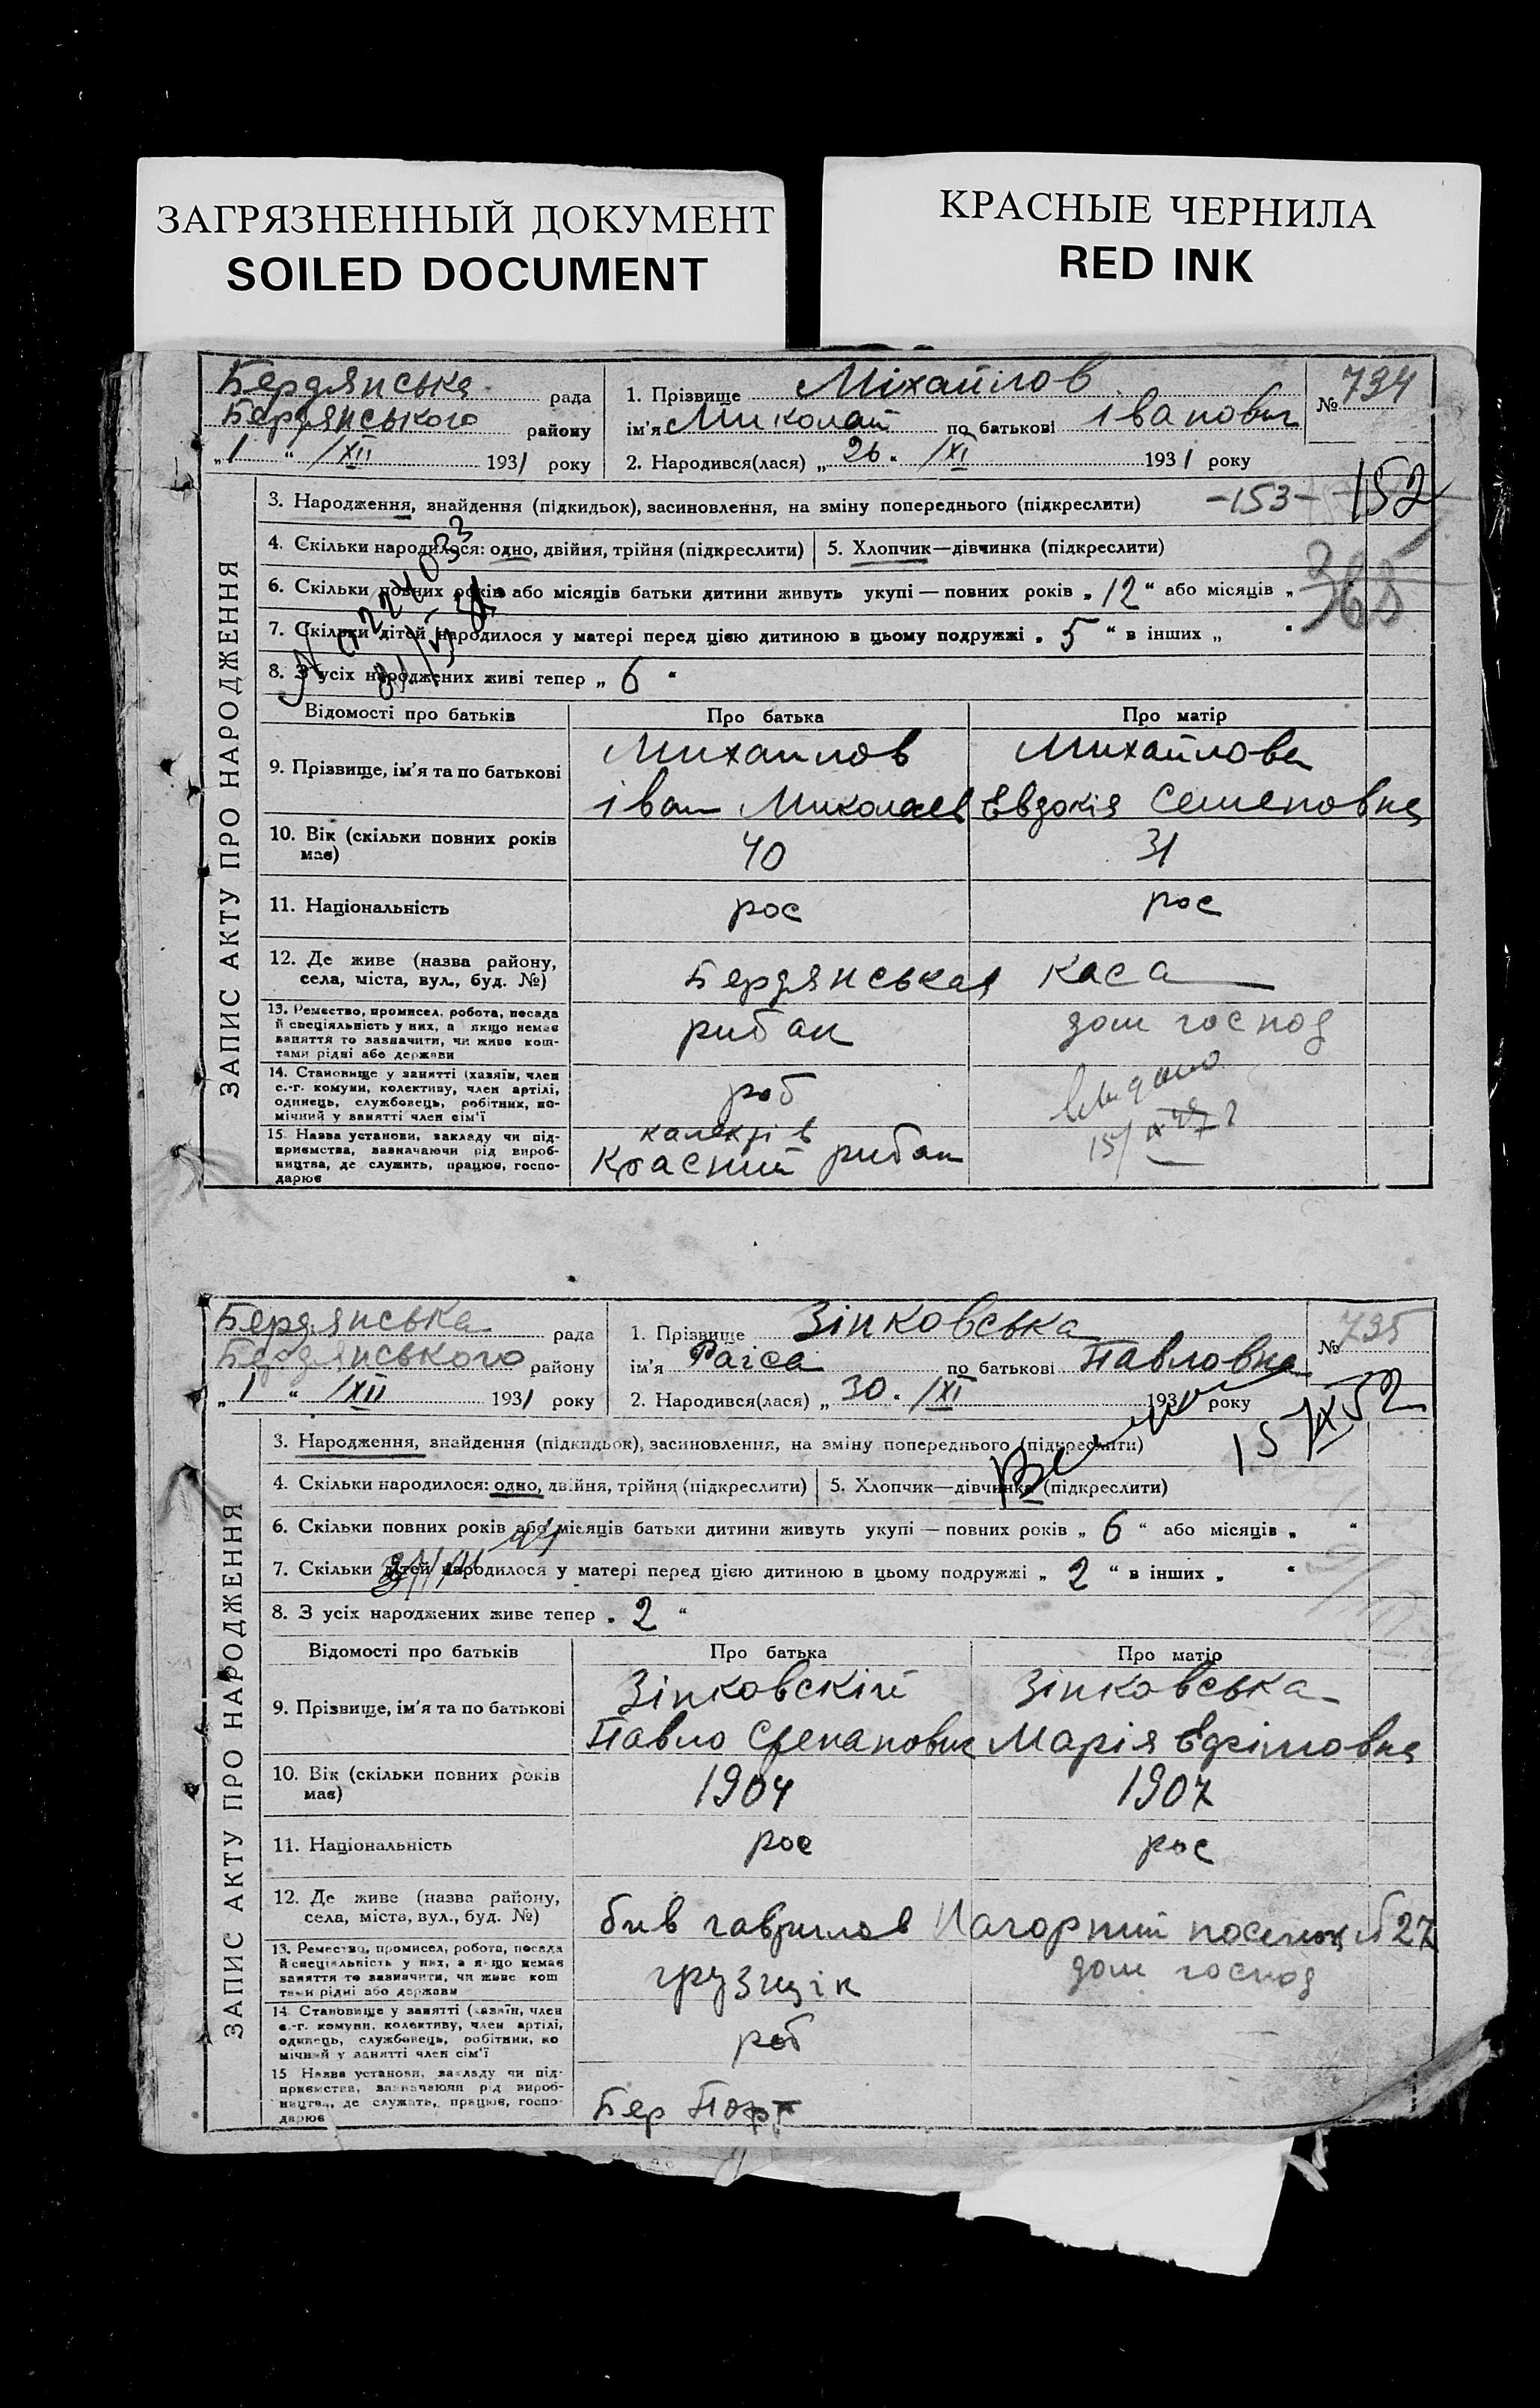 ЗАГРЯЗНЕННЫЙ ДОКУМЕНТ
SOILED DOCUMENT
КРАСНЫЕ ЧЕРНИЛА
RED INK
ЗАПИС АКТУ ПРО НАРОДЖЕННЯ
Бердянська рада
Бердянського району
„1“ /XII 1931 року
1. Прізвище Міхайлов
ім'я Миколай по батькові іванович
2. Народився(лася) „26“ /XI 1931 року
№ 734
152
3. Народження, знайдення (підкидьок), засиновлення, на зміну попереднього (підкреслити) -153-
4. Скільки народилося: одно, двійня, трійня (підкреслити) 5. Хлопчик—дівчинка (підкреслити)
6. Скільки повних років або місяців батьки дитини живуть укупі — повних років „12“ або місяців „
365
7. Скільки дітей народилося у матері перед цією дитиною в цьому подружжі „5“ в інших „ “
8. З усіх народжених живі тепер „6“
Відомості про батьків Про батька Про матір
9. Прізвище, ім'я та по батькові
Михайлов Михайлова
іван Миколаев Евдокія Семеновна
10. Вік (скільки повних років має) 40 31
11. Національність рос рос
12. Де живе (назва району, села, міста, вул., буд. №) Бердянськая каса
13. Ремество, промисел, робота, посада й спеціяльність у них, а якщо немає заняття то зазначити, чи живе коштами рідні або держави
рибак дом господ
14. Становище у занятті (хазяїн, член с.-г. комуни, колективу, член артілі, одинець, службовець, робітник, помічний у занятті член сім'ї
роб
15. Назва установи, закладу чи підприємства, зазначаючи рід виробництва, де служить, працює, господарює
Красний рибак
ЗАПИС АКТУ ПРО НАРОДЖЕННЯ
Бердянська рада
Бердянського району
„1“ /XII 1931 року
1. Прізвище Зінковська
ім'я Раіса по батькові Павловна
2. Народився(лася) „30“ /XI 1931 року
№ 735
15 IX 52
3. Народження, знайдення (підкидьок), засиновлення, на зміну попереднього (підкреслити)
4. Скільки народилося: одно, двійня, трійня (підкреслити) 5. Хлопчик—дівчинка (підкреслити)
6. Скільки повних років або місяців батьки дитини живуть укупі — повних років „6“ або місяців „ “
7. Скільки дітей народилося у матері перед цією дитиною в цьому подружжі „2“ в інших „ “
8. З усіх народжених живе тепер „2“
Відомості про батьків Про батька Про матір
9. Прізвище, ім'я та по батькові
Зінковскій Зінковська
Павло Степанович Марія Ефімовна
10. Вік (скільки повних років має) 1904 1907
11. Національність рос рос
12. Де живе (назва району, села, міста, вул., буд. №) бив гаврилов Нагорний поселок б 27
13. Ремество, промисел, робота, посада й спеціяльність у них, а якщо немає заняття то зазначити, чи живе коштами рідні або держави
грузщік дом господ
14. Становище у занятті (хазяїн, член с.-г. комуни, колективу, член артілі, одинець, службовець, робітник, помічний у занятті член сім'ї
роб
15. Назва установи, закладу чи підприємства, зазначаючи рід виробництва, де служать, працює, господарює
Бер Порт